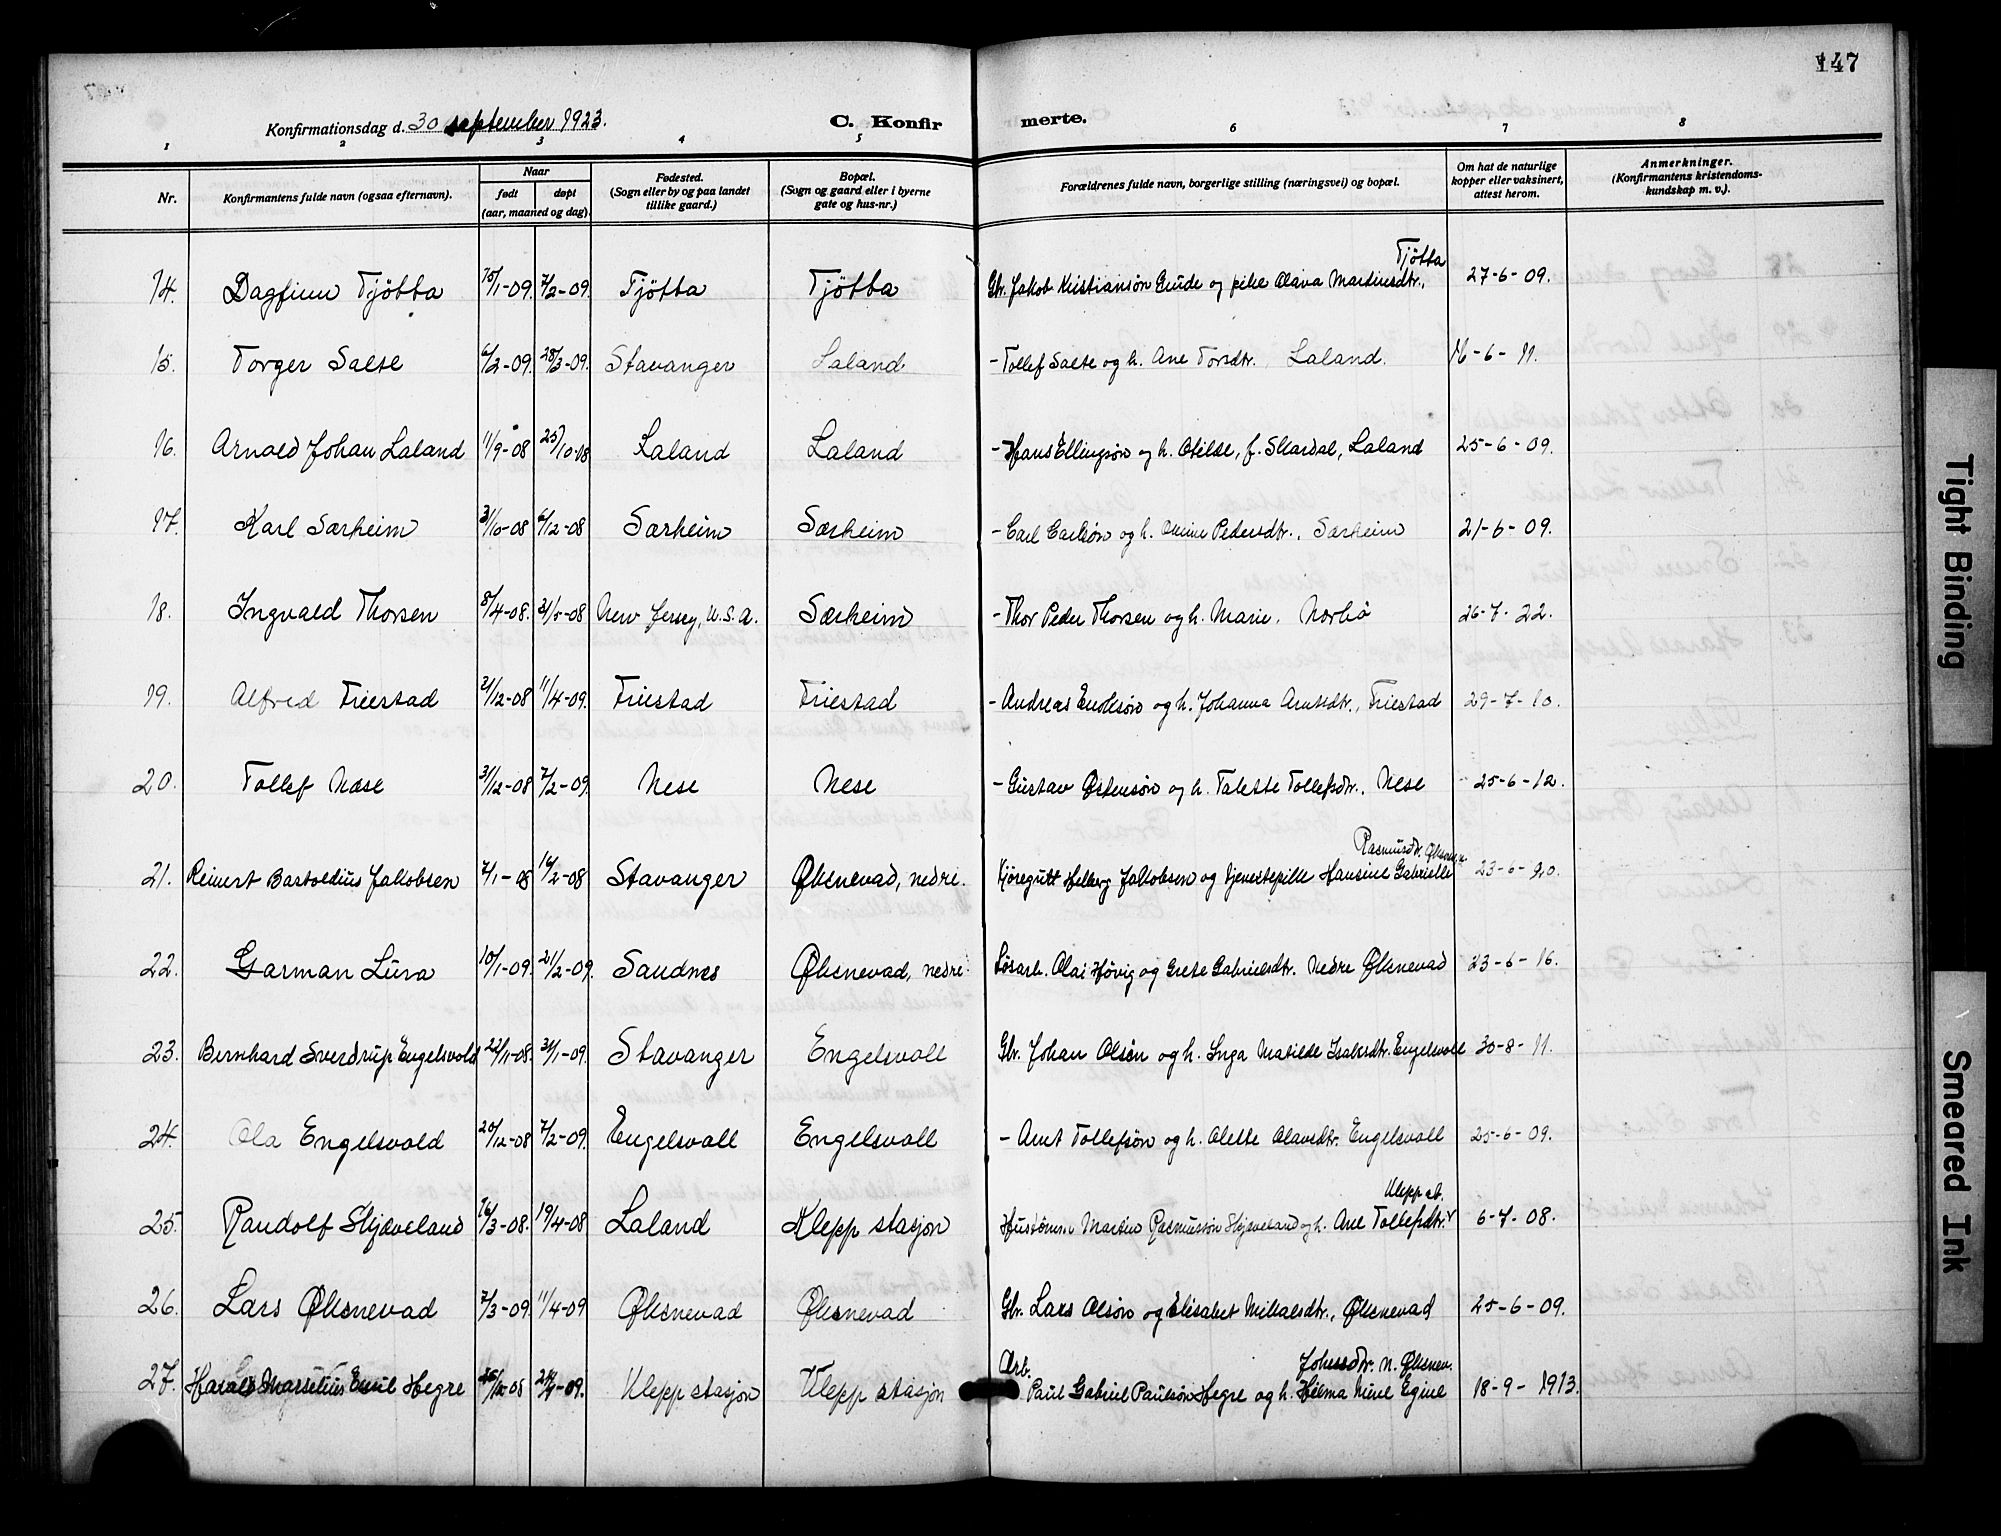 147
Konfirmationsdag d. 30 september 1923. C. Konfirmerte.
1 2 3 4 5 6 7 8
Nr. Konfirmantens fulde navn (ogsaa efternavn). Naar født døpt (aar, maaned og dag). Fødested. (Sogn eller by og paa landet tillike gaard.) Bopæl. (Sogn og gaard eller i byerne gate og hus-nr.) Forældrenes fulde navn, borgerlige stilling (næringsvei) og bopæl. Om hat de naturlige kopper eller vaksinert, attest herom. Anmerkninger. (Konfirmantens kristendomskundskap m. v.).
14. Dagfinn Tjøtta 15/1-09. 7/2-09. Tjøtta Tjøtta Gbr. Jakob Kristiansøn Gude og pike Olava Martinsdtr., Tjøtta 27-6-09.
15. Torger Salte 6/2-09. 28/3-09. Stavanger Laland - Tollef Salte og h. Ane Torsdtr. Laland. 16-6-11.
16. Arnold Johan Laland 11/9-08 25/10-08 Laland Laland - Hans Ellingsøn og h. Otilde, f. Skardal, Laland 25-6-09.
17. Karl Særheim 31/10-08 6/12-08 Særheim Særheim - Carl Carlsøn og h. Pedersdtr., Særheim 21-6-09.
18. Ingvald Thorsen 8/4-08. 31/5-08 New Jersey, U.S.A. Særheim - Thor Peder Thorsen og h. Marie, Nærbø 26-7-22.
19. Alfred Friestad 21/12-08 11/4-09. Friestad Friestad - Andreas Endresøn og h. Johanna Arntsdtr., Friestad 29-7-10.
20. Tollef Næse 31/12-08 7/2-09. Nese Nese - Gustav Østensøn og h. Talette Tollefsdtr., Nese 25-6-12.
21. Reinert Bartoldius Jakobsen 7/1-08 16/2-08 Stavanger Øksnevad, nedre. Kjøregutt Helberg Jakobsen og tjenestepike Hansine Gabrielle Rasmusdtr. Øksnev. n. 23-6-20.
22. Garman Lura 10/1-09. 21/2-09. Sandnes Øksnevad, nedre. Løsarb. Olai Høvig og Grete Gabrielsdtr. Nedre Øksnevad 23-6-16.
23. Bernhard Sverdrup Engelsvold 22/11-08 31/1-09. Stavanger Engelsvoll Gbr. Johan Olsen og h. Inga Matilde Isaksdtr. Engelsvoll 30-8-11.
24. Ola Engelsvold 20/12-08 7/2-09. Engelsvoll Engelsvoll - Arnt Tollefsøn og h. Olette Olavsdtr. Engelsvoll 25-6-09.
25. Randolf Skjæveland 16/3-08. 19/4-08 Laland Klepp stasjon Hustømm Martin Rasmussøn Skjæveland og h. Ane Tollefsdtr. Klepp st. 6-7-08.
26. Lars Øksnevad 7/3-09. 11/4-09 Øksnevad Øksnevad Gbr. Lars Olsøn og Elisabet Mikalsdtr., Øksnevad 25-6-09.
27. Harald Marselius Emil Hegre Klepp stasjon Klepp stasjon Arb. Paul Gabriel Paulsøn Hegre og h. Hilma Nine Egine Johnsdtr. n. Øksnev. 18-9-1913.
Tight Binding
Smeared Ink